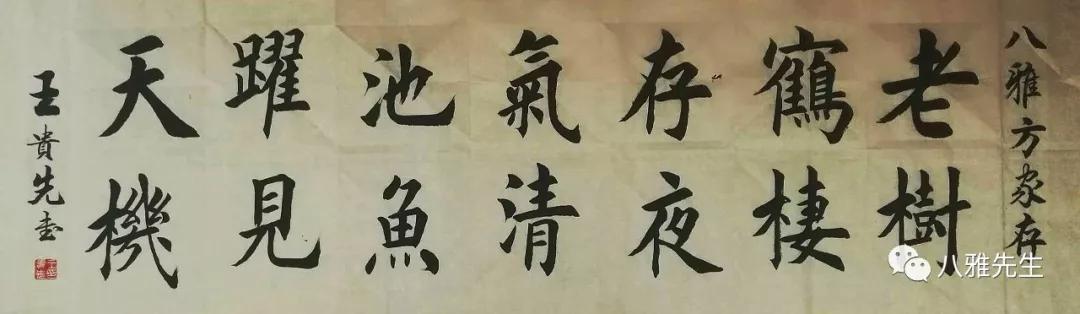 八雅方家存
老樹
鶴棲
存夜
氣清
池魚
躍見
天機
王貴先書
八雅先生